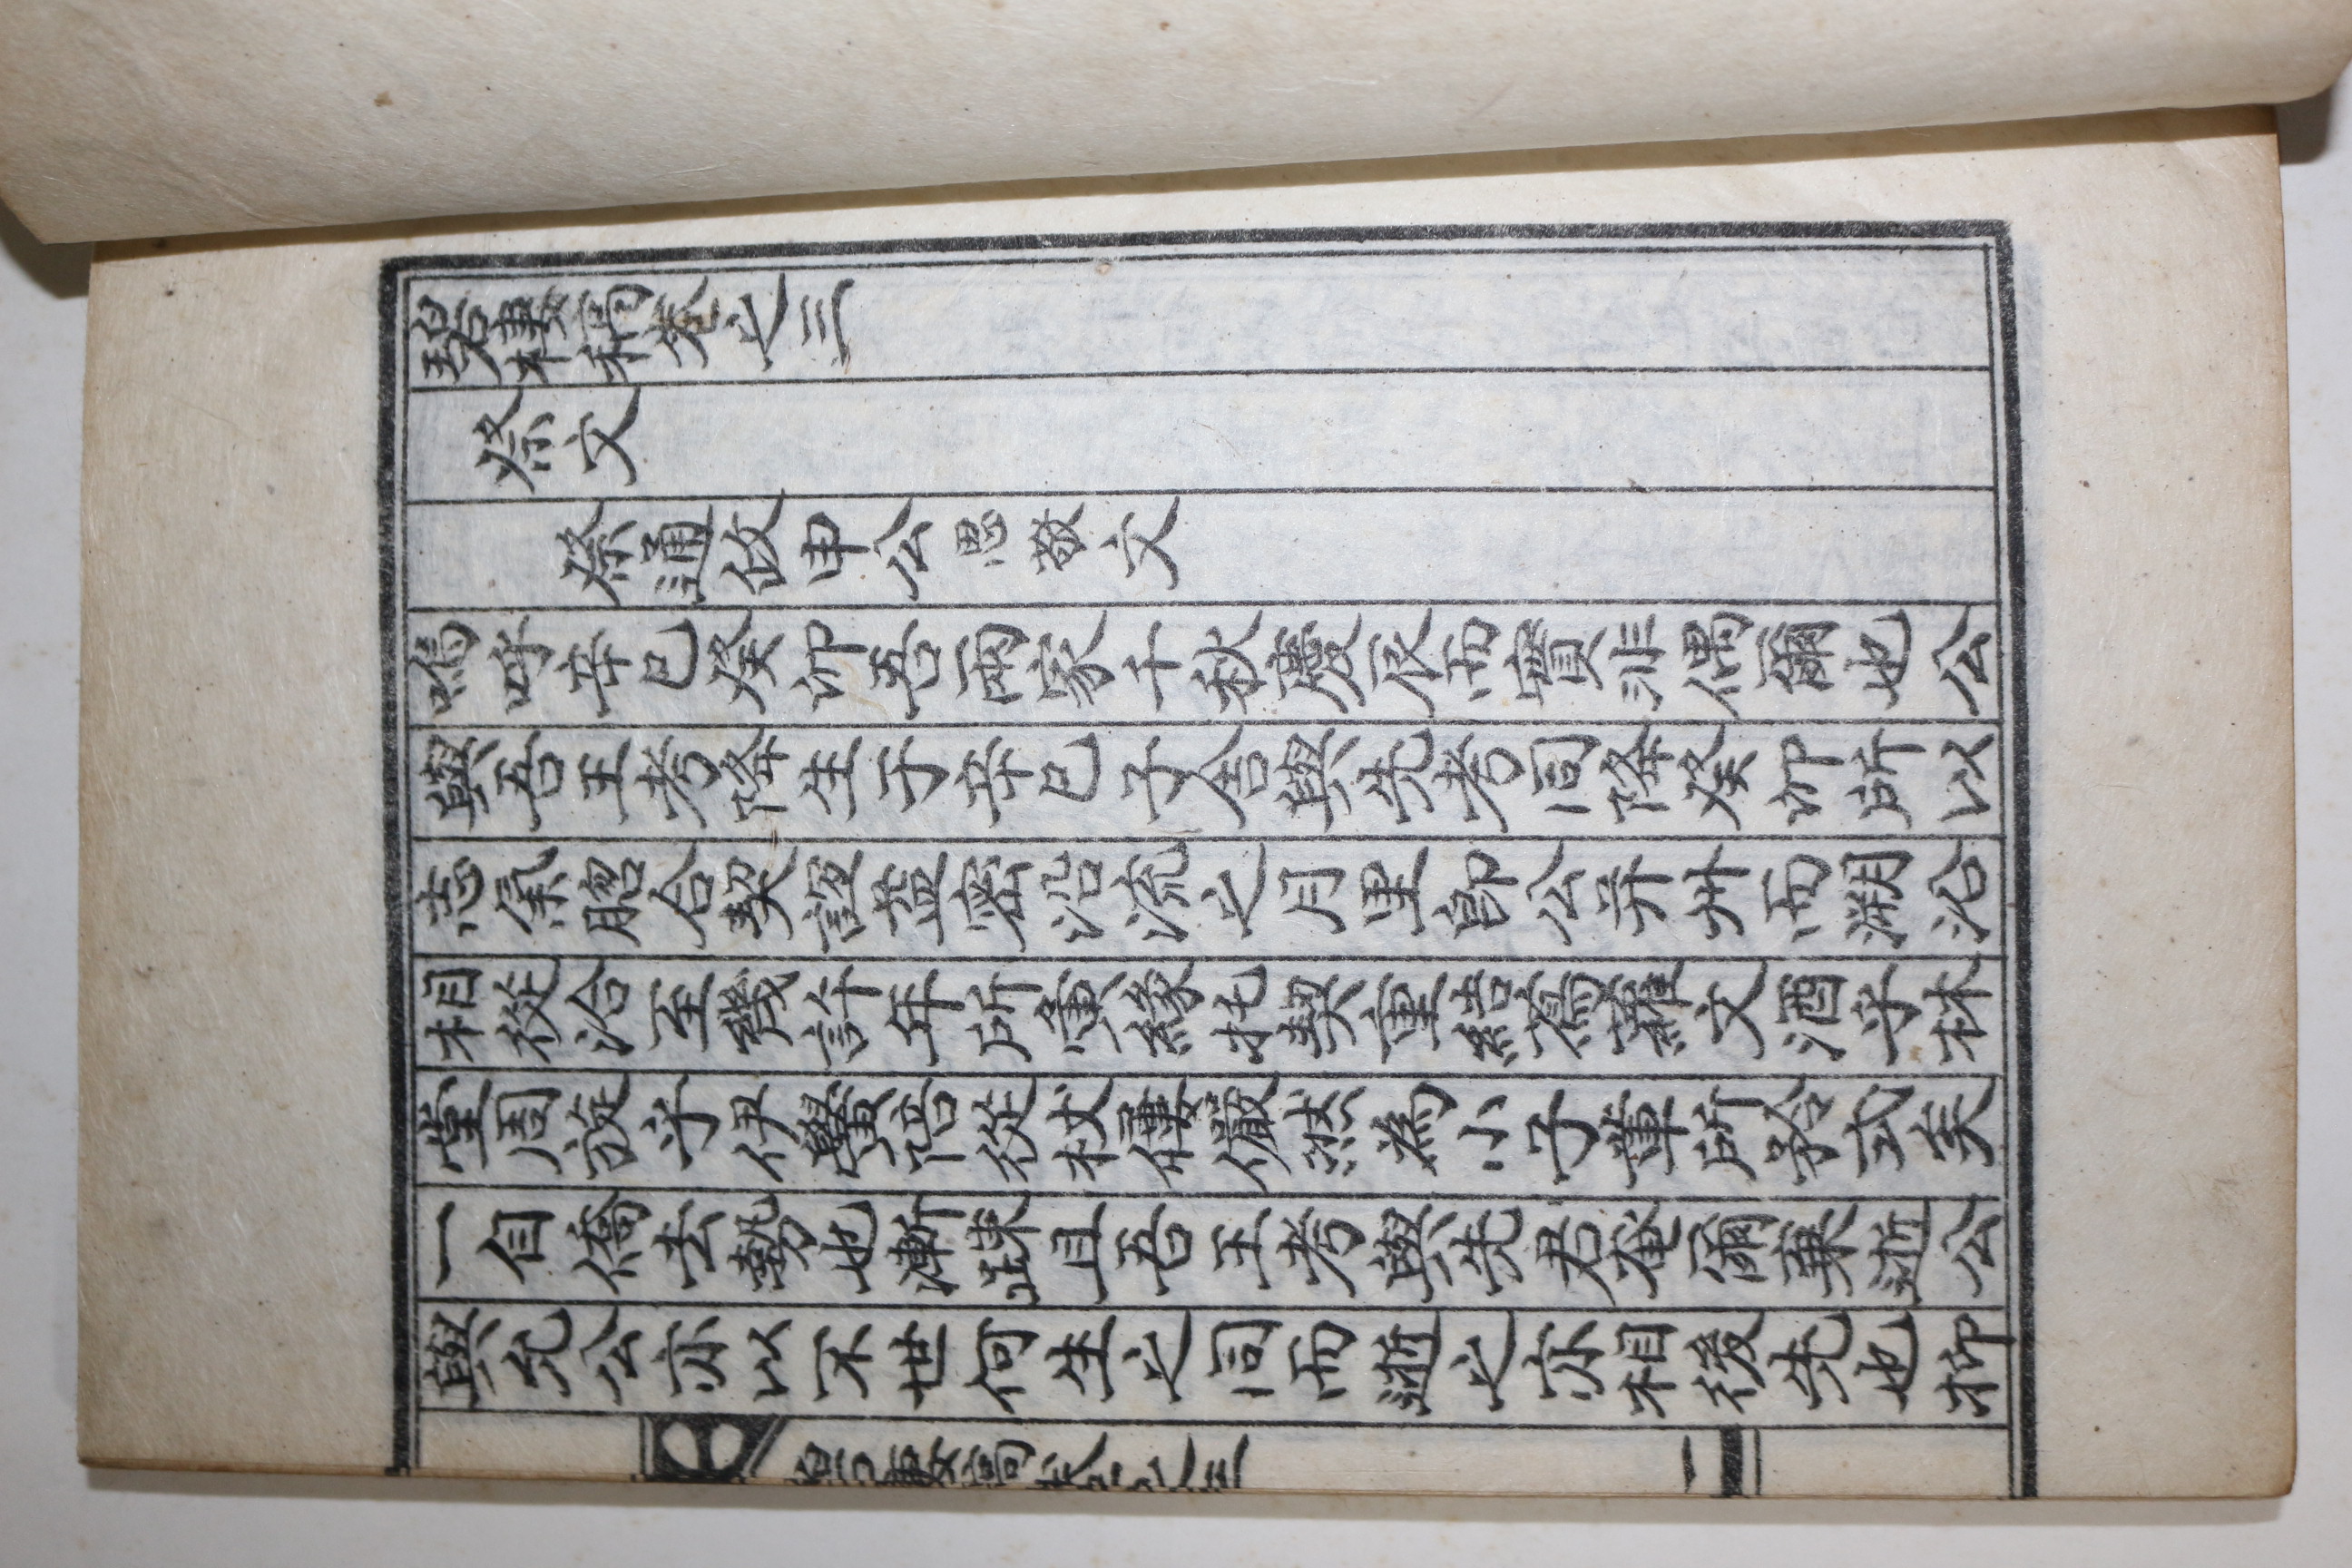 碧棲稿卷之三
祭文
祭通政申公思敬文
嗚呼辛巳癸卯吾兩家千秋慶辰而實非偶爾也公
與吾王考降生于辛巳子舍與先考同降癸卯所以
志氣脗合契誼益密沿流之月里卽公并州而溯沿
相從洽至幾許年所夤緣托契重結蔦蘿文酒乎林
堂周旋乎伊黌陪從杖屨儼然為小子輩所矜式矣
一自僑去勢也漸踈且吾王考與先君奄爾棄逝公
與允公亦以不世何生之同而逝之亦相後先也抑
碧棲稿卷之三
一